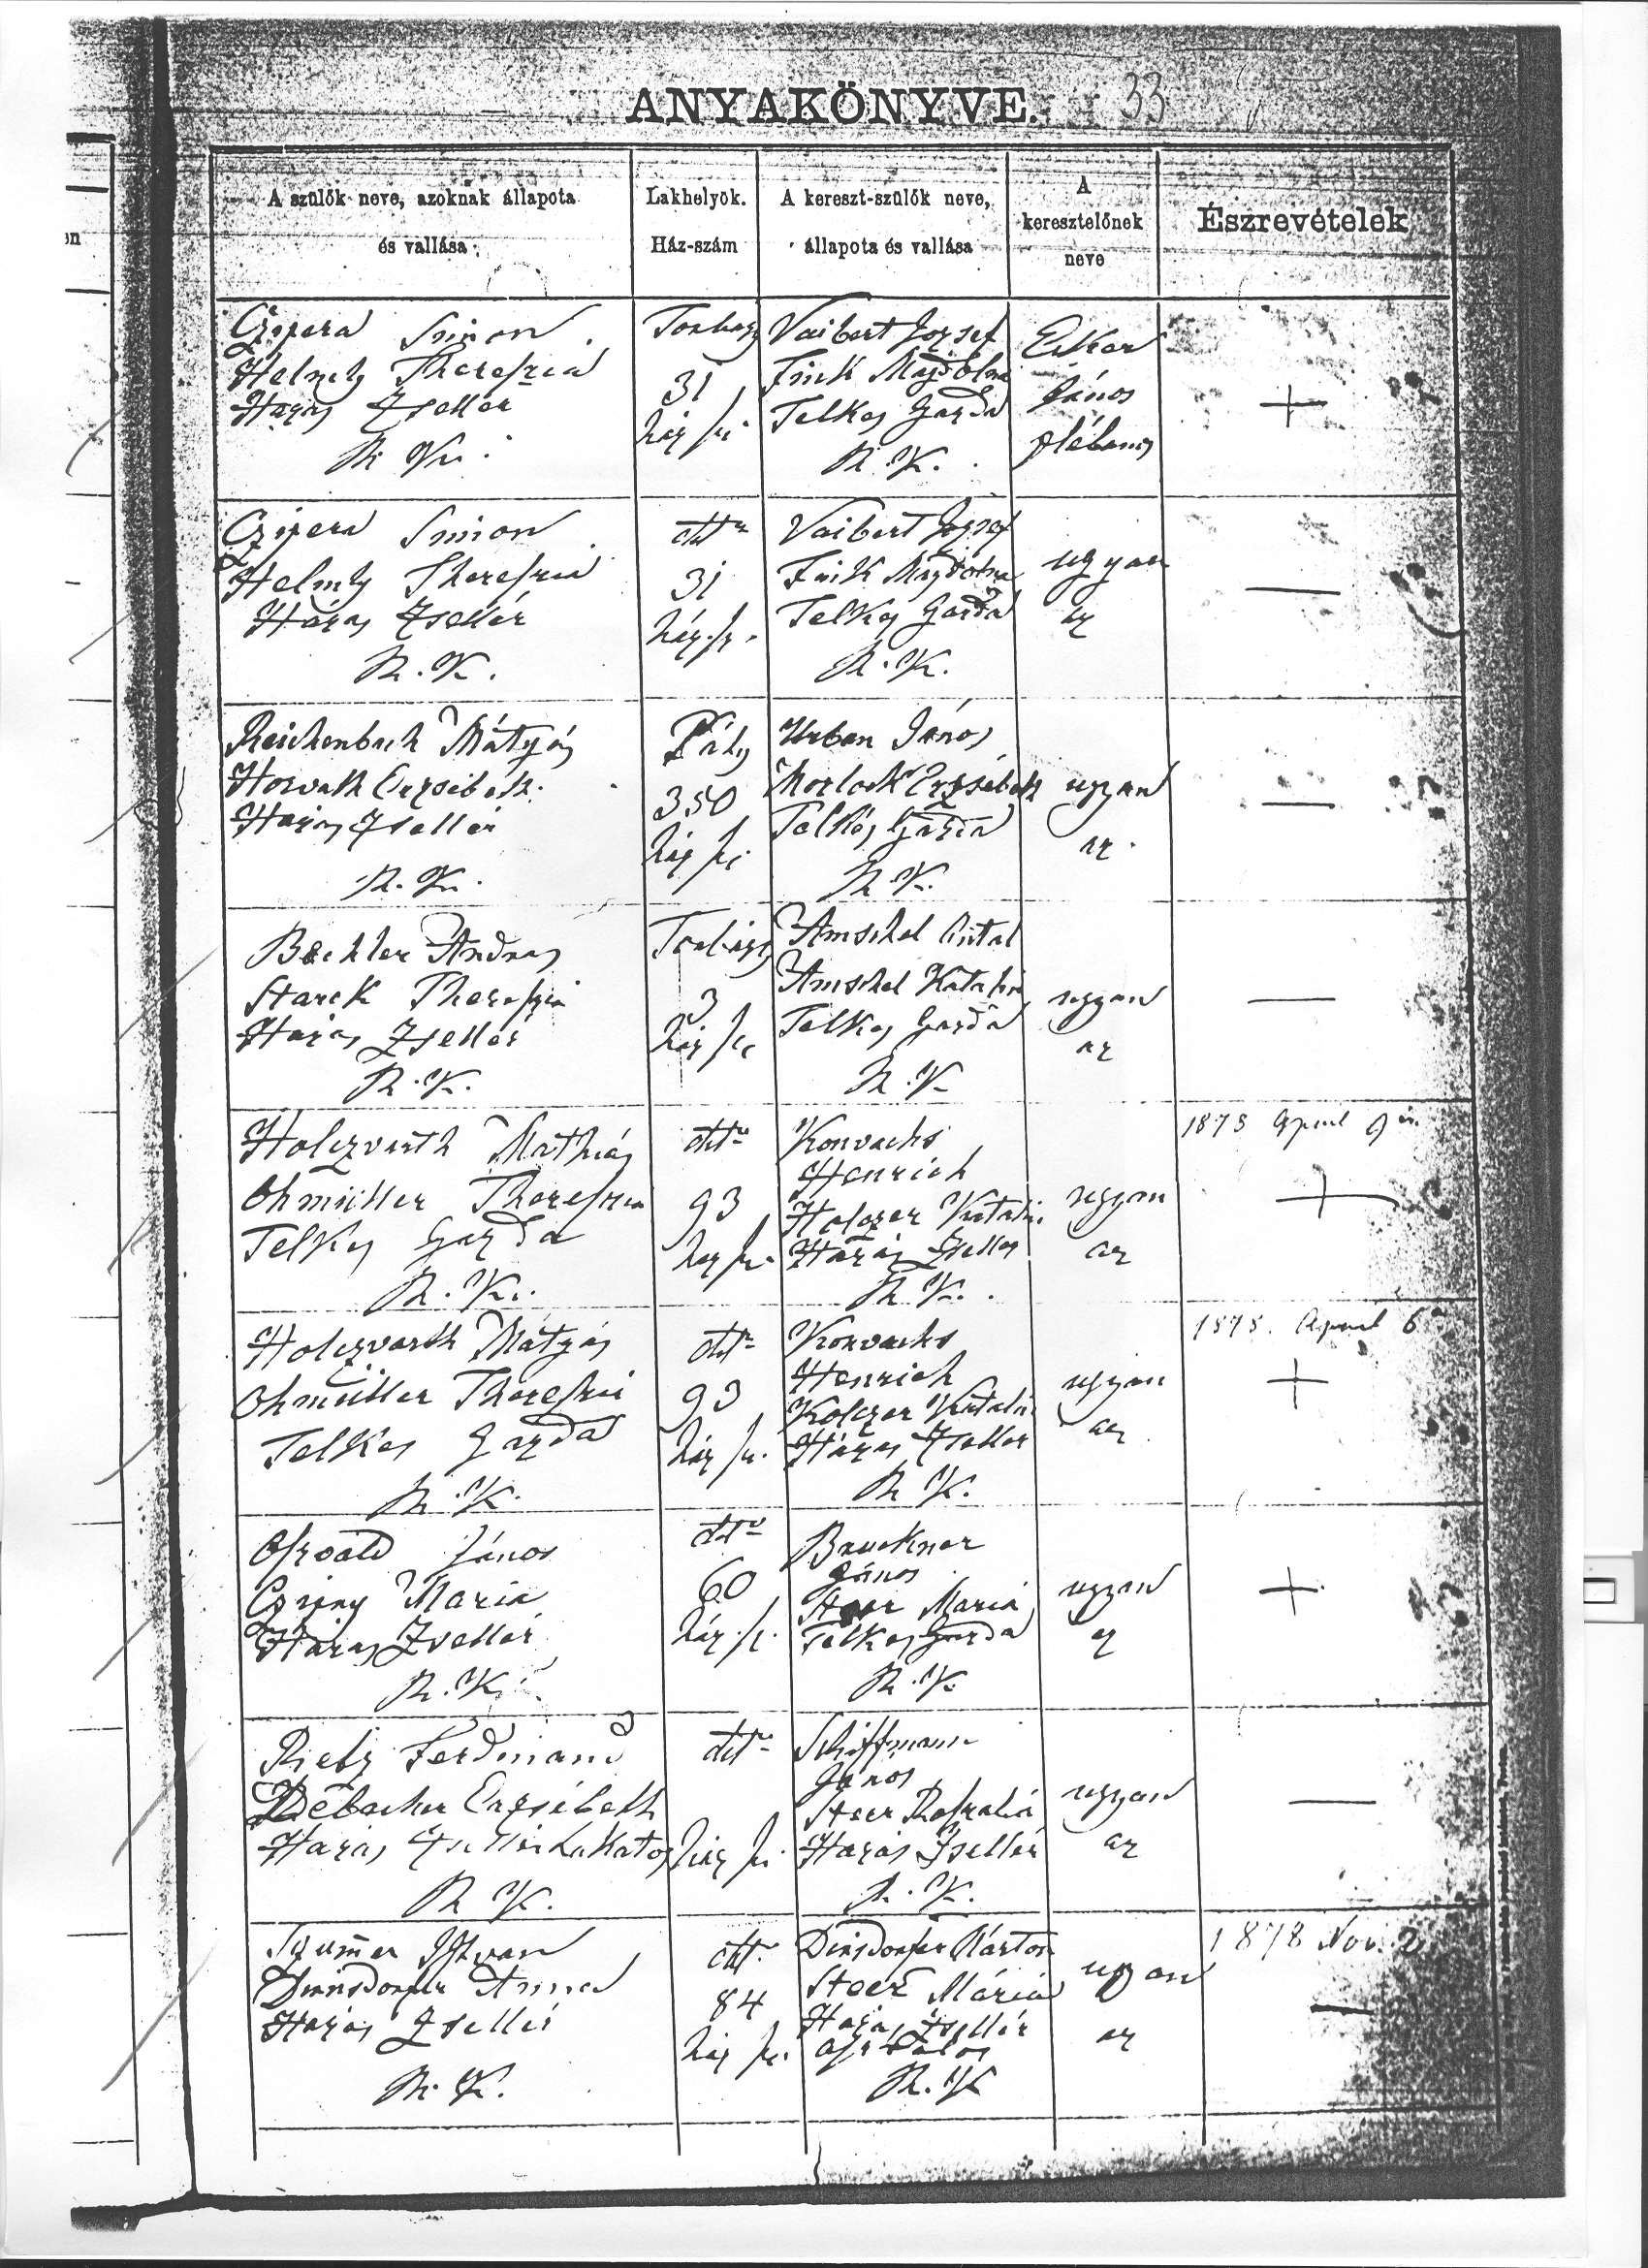 ANYAKÖNYVE. 33
A szülők neve, azoknak állapota
és vallása
Lakhelyök.
Ház-szám
A kereszt-szülők neve,
állapota és vallása
A
keresztelőnek
neve
Észrevételek
Czipera Simon
Helmly Therefzia
Házas Zsellér
R. K.
Torbágy
31
ház sz.
Vaibert Jozsef
Fink Magdolna
Telkes Gazda
R. K.
Eiker
János
plébános
+
Czipera Simon
Helmly Therefzia
Házas Zsellér
R. K.
dttо
31
ház. sz.
Vaibert Jozsef
Fink Magdolna
Telkes Gazda
R. K.
ugyan
az
—
Reichenbach Mátyás
Horvath Erzsébeth
Házas Zsellér
R. K.
Páty
350
ház sz.
Urban János
Morlock Erzsébeth
Telkes Gazda
R. K.
ugyan
az
—
Bechler Andras
Starck Therefzia
Házas Zsellér
R. K.
Torbágy
3
ház sz.
Amschel Antal
Amschel Katalin
Telkes Gazda
R. K
ugyan
az
—
Holczvarth Mathiás
Ohmüller Therefzia
Telkes Gazda
R. K.
dtto
93
ház sz.
Konvachs
Henrich
Holczer Katalin
Házas Zsellér
R. K.
ugyan
az
1878 April 9
+
Holczvarth Mátyás
Ohmüller Therefzia
Telkes Gazda
R. K.
dtto
93
ház sz.
Konvachs
Henrich
Holczer Katalin
Házas Zsellér
R. K.
ugyan
az
1878. April 6
+
Ofzvald János
Maria
Házas Zsellér
R. K.
dtto
60
ház. sz.
Bruckner
János
Steer Maria
Telkes Gazda
R. K
ugyan
az
+
Rietz Ferdinand
Erzsébeth
Házas Zsellér Lakatos
R. K.
dtto
ház sz.
Schiffmann
János
Steer Rofzalia
Házas Zsellér
R. K.
ugyan
az
—
István
Dinsdorfer Anna
Házas Zsellér
R. K.
dtto
84
ház sz.
Dinsdorfer Márton
Steer Mária
Házas Zsellér
R. K
ugyan
az
1878 Nov. 2
—